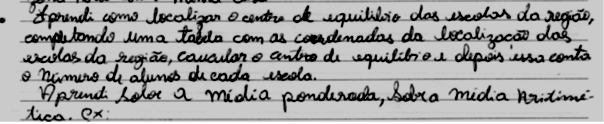 • Aprendi como localizar o centro de equilíbrio das escolas da região,
completando uma tabela com as coordenadas da localização das
escolas da região, caucular o centro de equilibrio e depois essa conta
o número de alunos de cada escola.
Aprendi sobre a mídia ponderada, sobra mídia Aritimé-
tica. Ex: